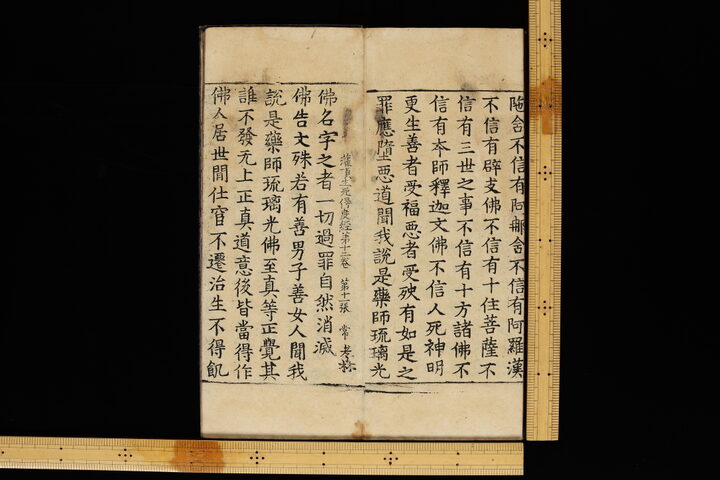 陁含不信有阿那含不信有阿羅漢
不信有辟支佛不信有十住菩薩不
信有三世之事不信有十方諸佛不
信有本師釋迦文佛不信人死神明
更生善者受福惡者受殃有如是之
罪應墮惡道聞我說是藥師琉璃光
灌頂生死得度經第十二卷 第十一張 常
佛名字之者一切過罪自然消滅
佛告文殊若有善男子善女人聞我
說是藥師琉璃光佛至真等正覺其
誰不發无上正真道意後皆當得作
佛人居世間仕官不遷治生不得飢